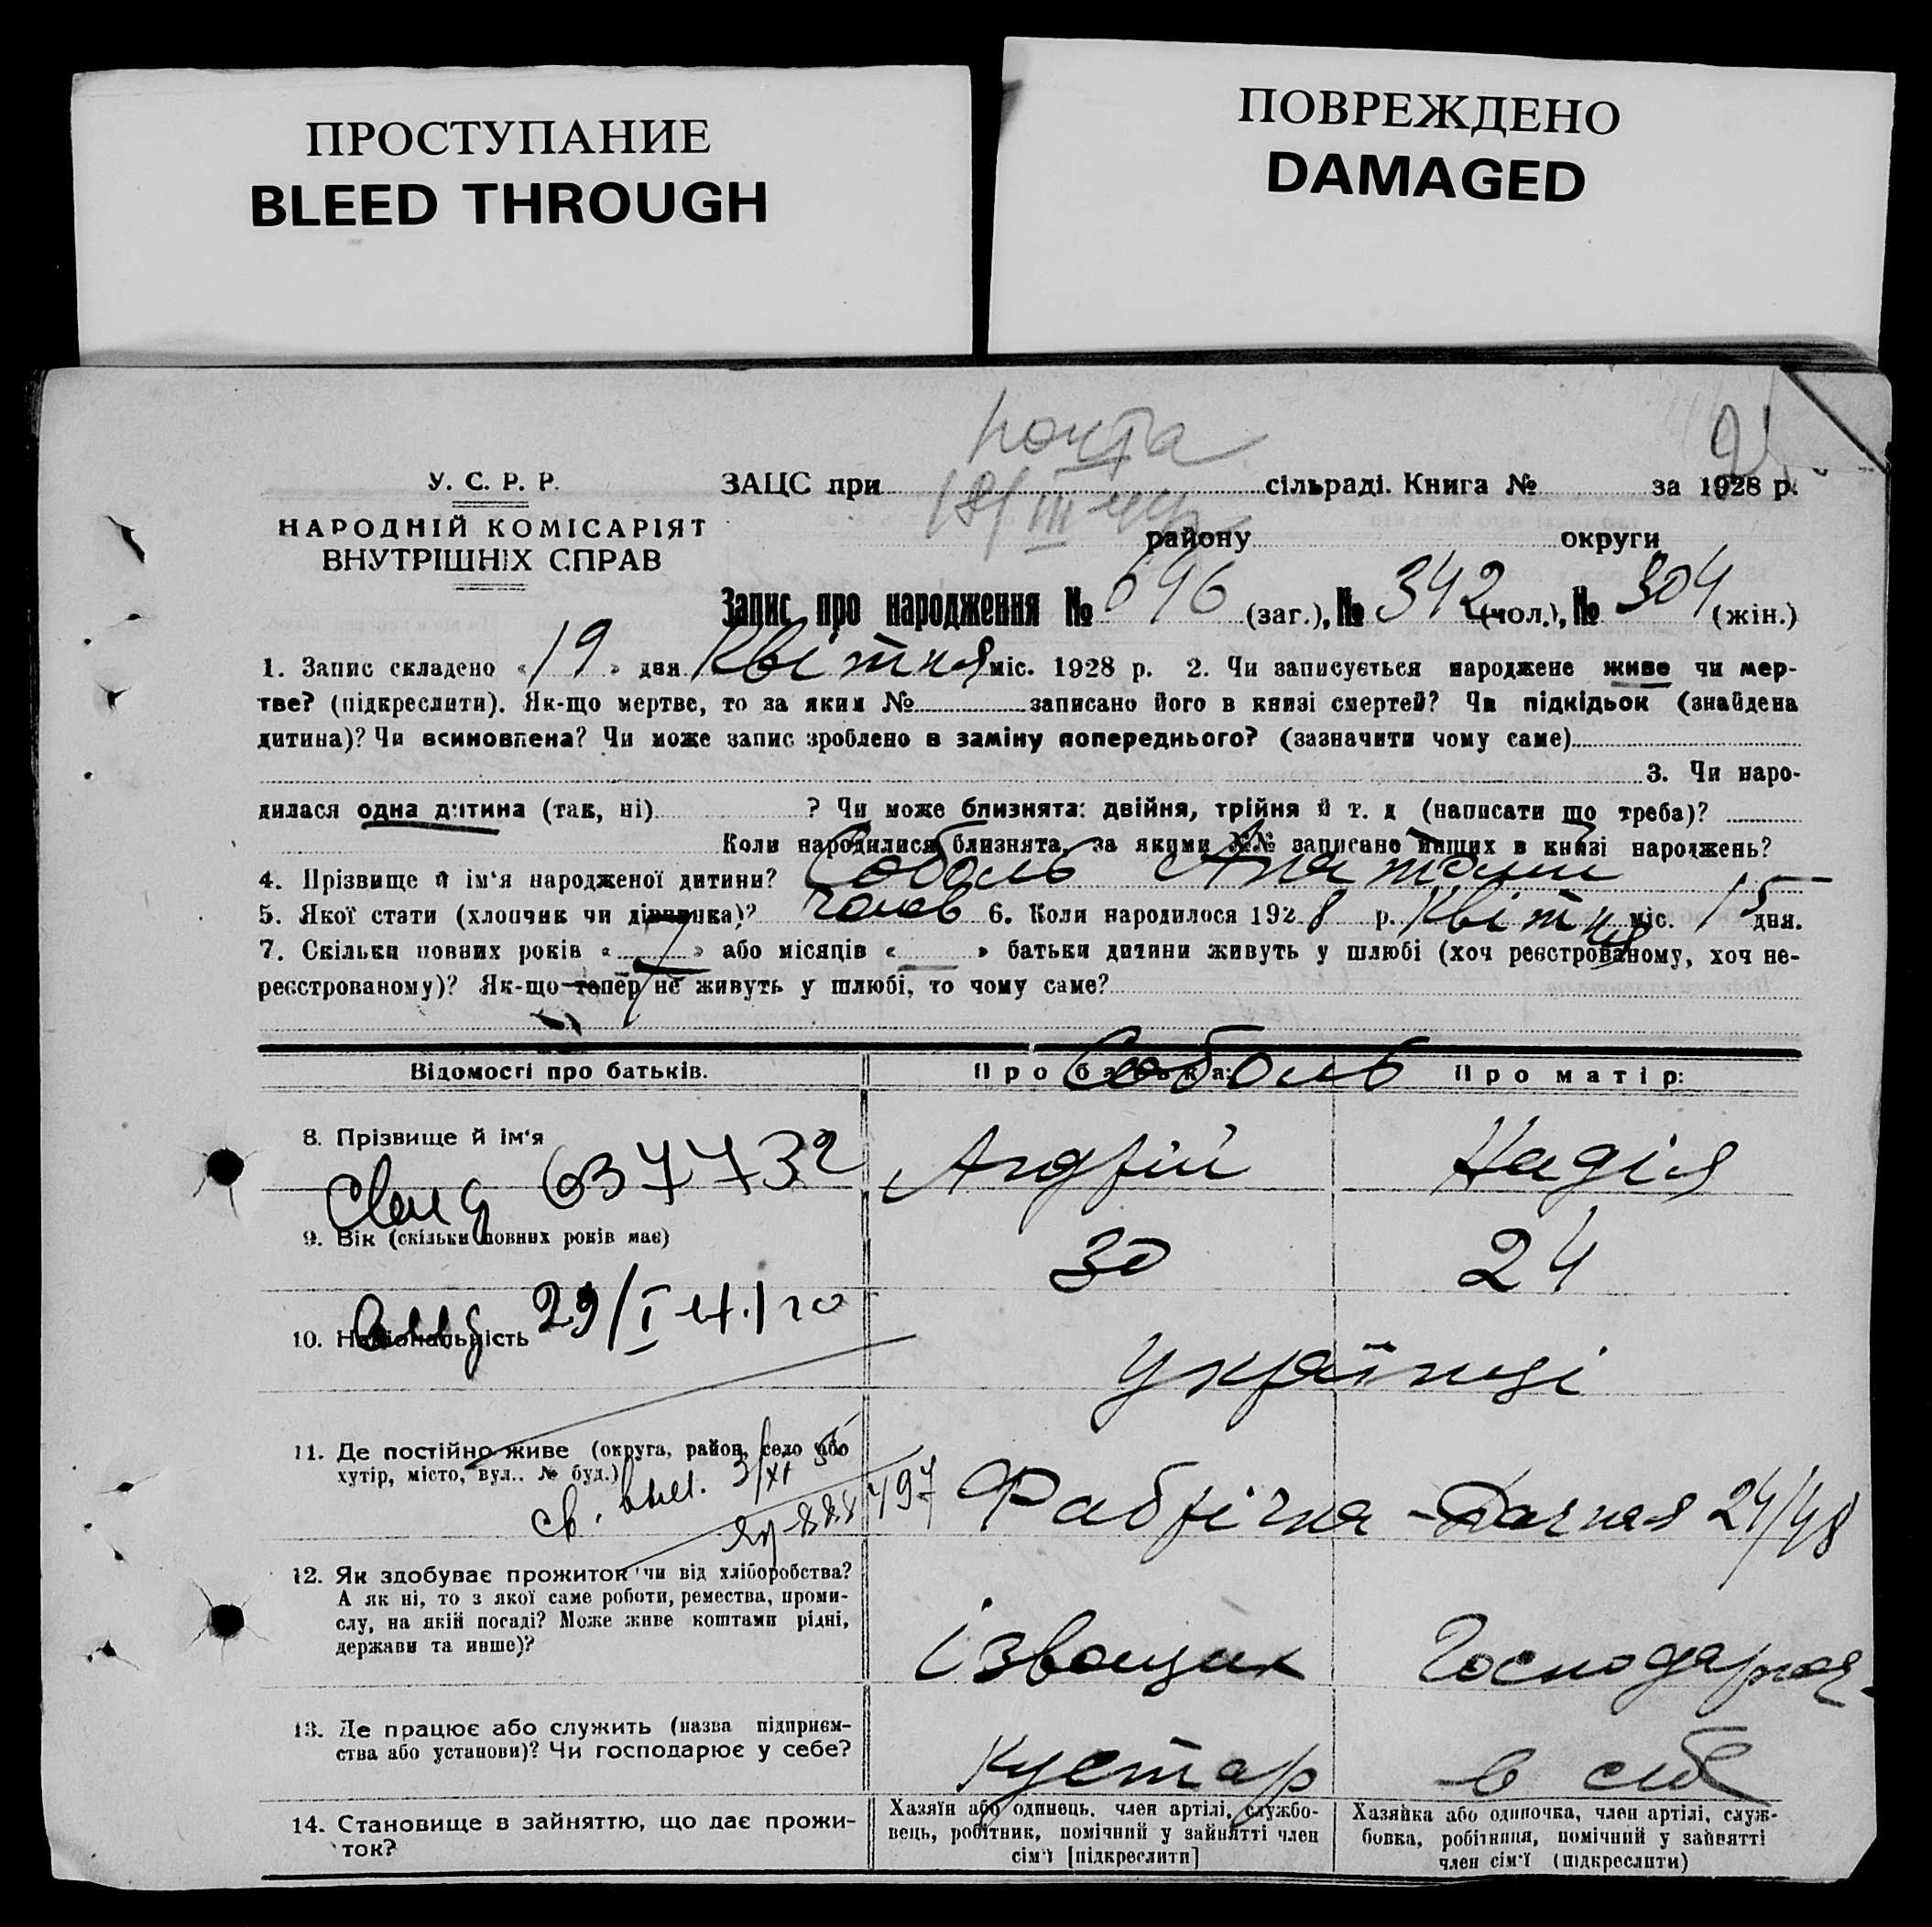 ПРОСТУПАНИЕ
BLEED THROUGH
ПОВРЕЖДЕНО
DAMAGED
почта
18/III
У. С. Р. Р.
НАРОДНІЙ КОМІСАРІЯТ
ВНУТРІШНІХ СПРАВ
ЗАЦС при сільраді. Книга № за 1928 р.
району округи
Запис про народження № 646 (заг.), № 342 (чол.), № 304 (жін.)
1. Запис складено « 19 » дня Квітня міс. 1928 р. 2. Чи записується народжене живе чи мер-
тве? (підкреслити). Як-що мертве, то за яким № записано його в книзі смертей? Чи підкідьок (знайдена
дитина)? Чи всиновлена? Чи може запис зроблено в заміну попереднього? (зазначити чому саме)
3. Чи наро-
дилася одна дитина (так, ні) ? Чи може близнята: двійня, трійня й т. д (написати що треба)?
Коли народилися близнята, за якими №№ записано инших в книзі народжень?
4. Прізвище й ім'я народженої дитини? Соболь Анатолий
5. Якої стати (хлопчик чи дівчинка)? Чолов 6. Коли народилося 1928 р. Квітня міс. 15 дня.
7. Скільки повних років « 7 » або місяців « — » батьки дитини живуть у шлюбі (хоч реєстрованому, хоч не-
реєстрованому)? Як-що тепер не живуть у шлюбі, то чому саме?
Відомості про батьків. Про батька: Про матір:
Соболь
8. Прізвище й ім'я Андрій Надія
637732
9. Вік (скільки повних років має) 30 24
29/I
10. Національність Українці
11. Де постійно живе (округа, район, село або
хутір, місто, вул.. № буд.) Фабрічна - Дачная 24/48
3/XI
12. Як здобуває прожиток чи від хліборобства?
А як ні, то з якої саме роботи, ремества, проми-
слу, на якій посаді? Може живе коштами рідні,
держави та инше)?
Ізвощик Господарка
13. Де працює або служить (назва підприєм-
ства або установи)? Чи господарює у себе?
Кустар в себе
14. Становище в зайняттю, що дає прожи-
ток?
Хазяїн або одинець, член артілі, службо-
вець, робітник, помічний у зайнятті член
сім'ї [підкреслити]
Хазяйка або одиночка, член артілі, служ-
бовка, робітниця, помічний у зайнятті
член сім'ї (підкреслити)